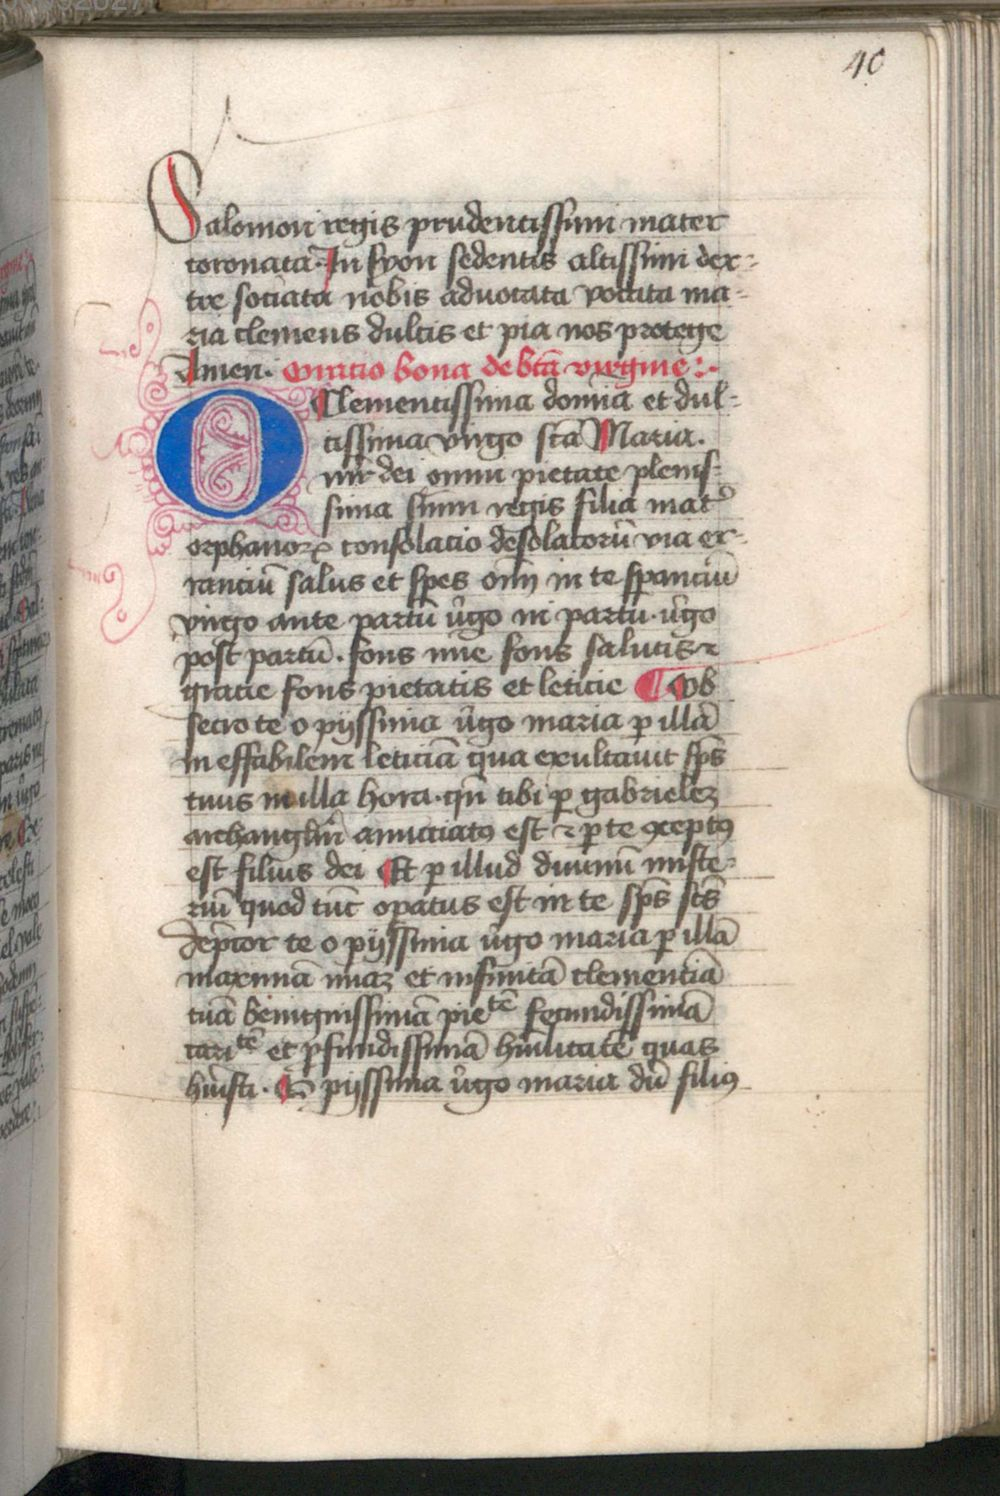 40
Salomon regis prudentissimi mater
coronata. In syon sedentis altissimi dex-
tre sociata nobis aduocata vocita ma-
ria clemens dulcis et pia nos protege
Amen. Oracio bona de btā virgine:.
O Clementissima domina et dul-
cissima virgo sctā Maria.
mr̄ dei omni pietate plenis-
sima sūmi regis filia mat᷑
orphanoꝝ consolacio desolatorū via er-
ranciū salus et spes oīm in te speranciū
virgo ante partū v̄go in partu. v̄go
post partū. fons mie fons salutis ⁊
gracie fons pietatis et leticie ¶ Ob
secro te o pijssima v̄go maria ꝑ illā
in effabilem leticiā qua exultauit sp̄s
tuus in illa hora. qn̄ tibi ꝑ gabrielem
archangelū anūciatꝰ est ⁊ ꝑ te ꝯceptꝰ
est filius dei Et ꝑ illud diuinū miste-
riū quod tūc opatus est in te sp̄s sct̄s
Dep̄cor te o pijssima v̄go maria ꝑ illā
maximā et infinitā clemenciā
tuā benignissimā pietē fecundissimā
caritē et ꝓfundissimā hūilitatē quas
hūisti. O pijssima v̄go maria dū filiꝰ